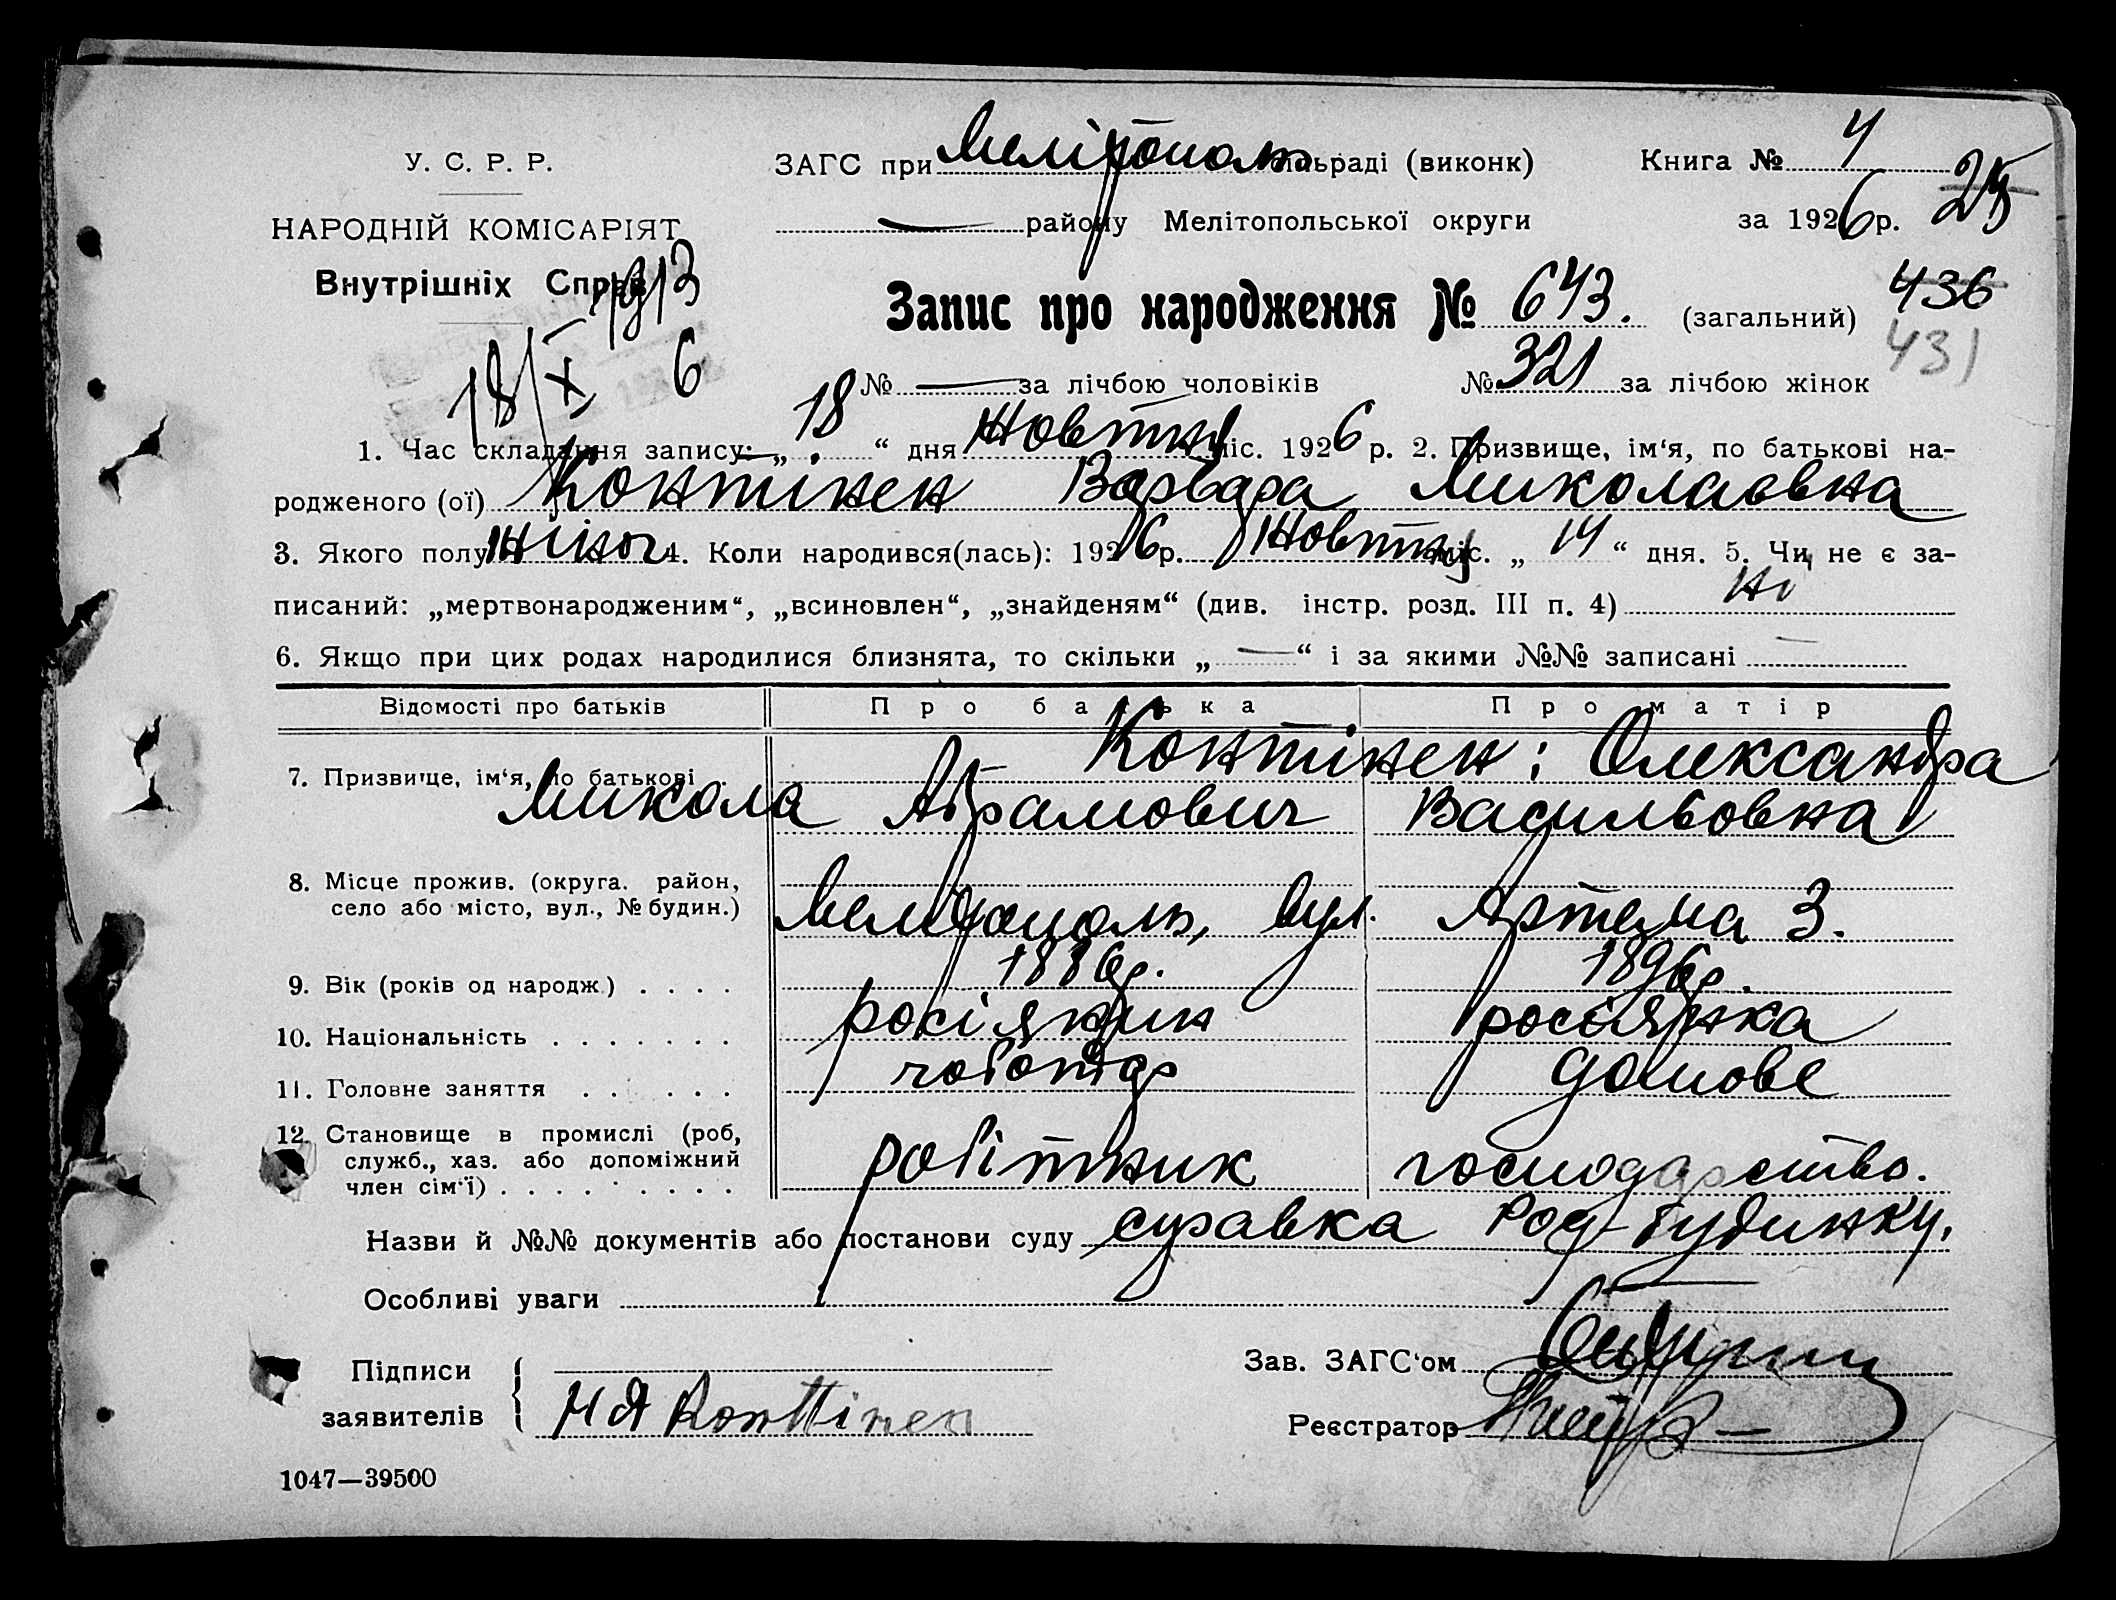 У. С. Р. Р.
НАРОДНІЙ КОМІСАРІЯТ
Внутрішніх Справ
ЗАГС при Мелітополь мільраді (виконк) Книга № 4
району Мелітопольської округи за 1926 р. 25
Запис про народження № 643. (загальний) 436
431
18/X 6
18 № — за лічбою чоловіків № 321 за лічбою жінок
1. Час складання запису: „ 18 “ дня Жовтня міс. 1926 р. 2. Призвище, ім‘я, по батькові на-
родженого (ої) Контінен Варвара Миколаєвна
3. Якого полу жіноч 4. Коли народився(лась): 1926 р. Жовтня міс. „ 14 “ дня. 5. Чи не є за-
писаний: „мертвонародженим“, „всиновлен“, „знайденям“ (див. інстр. розд. III п. 4) ні
6. Якщо при цих родах народилися близнята, то скільки „ — “ і за якими №№ записані —
Відомості про батьків Про батька Про матір
7. Призвище, ім‘я, по батькові Контінен: Олександра
Микола Абрамович Васильовна
8. Місце прожив. (округа. район,
село або місто, вул., № будин.) Мелітополь, вул. Артема 3.
9. Вік (років од народж.) . . . . 1886р. 1896р.
10. Національність . . . . . . . росіянин росіянка
11. Головне заняття . . . . . . чоботар домове
12. Становище в промислі (роб,
служб., хаз. або допоміжний робітник господарство.
член сім‘ї) . . . . . . . . .
Назви й №№ документів або постанови суду справка Род-будинку.
Особливі уваги
Підписи Зав. ЗАГС‘ом
заявителів Н А Konttinen Реєстратор
1047—39500